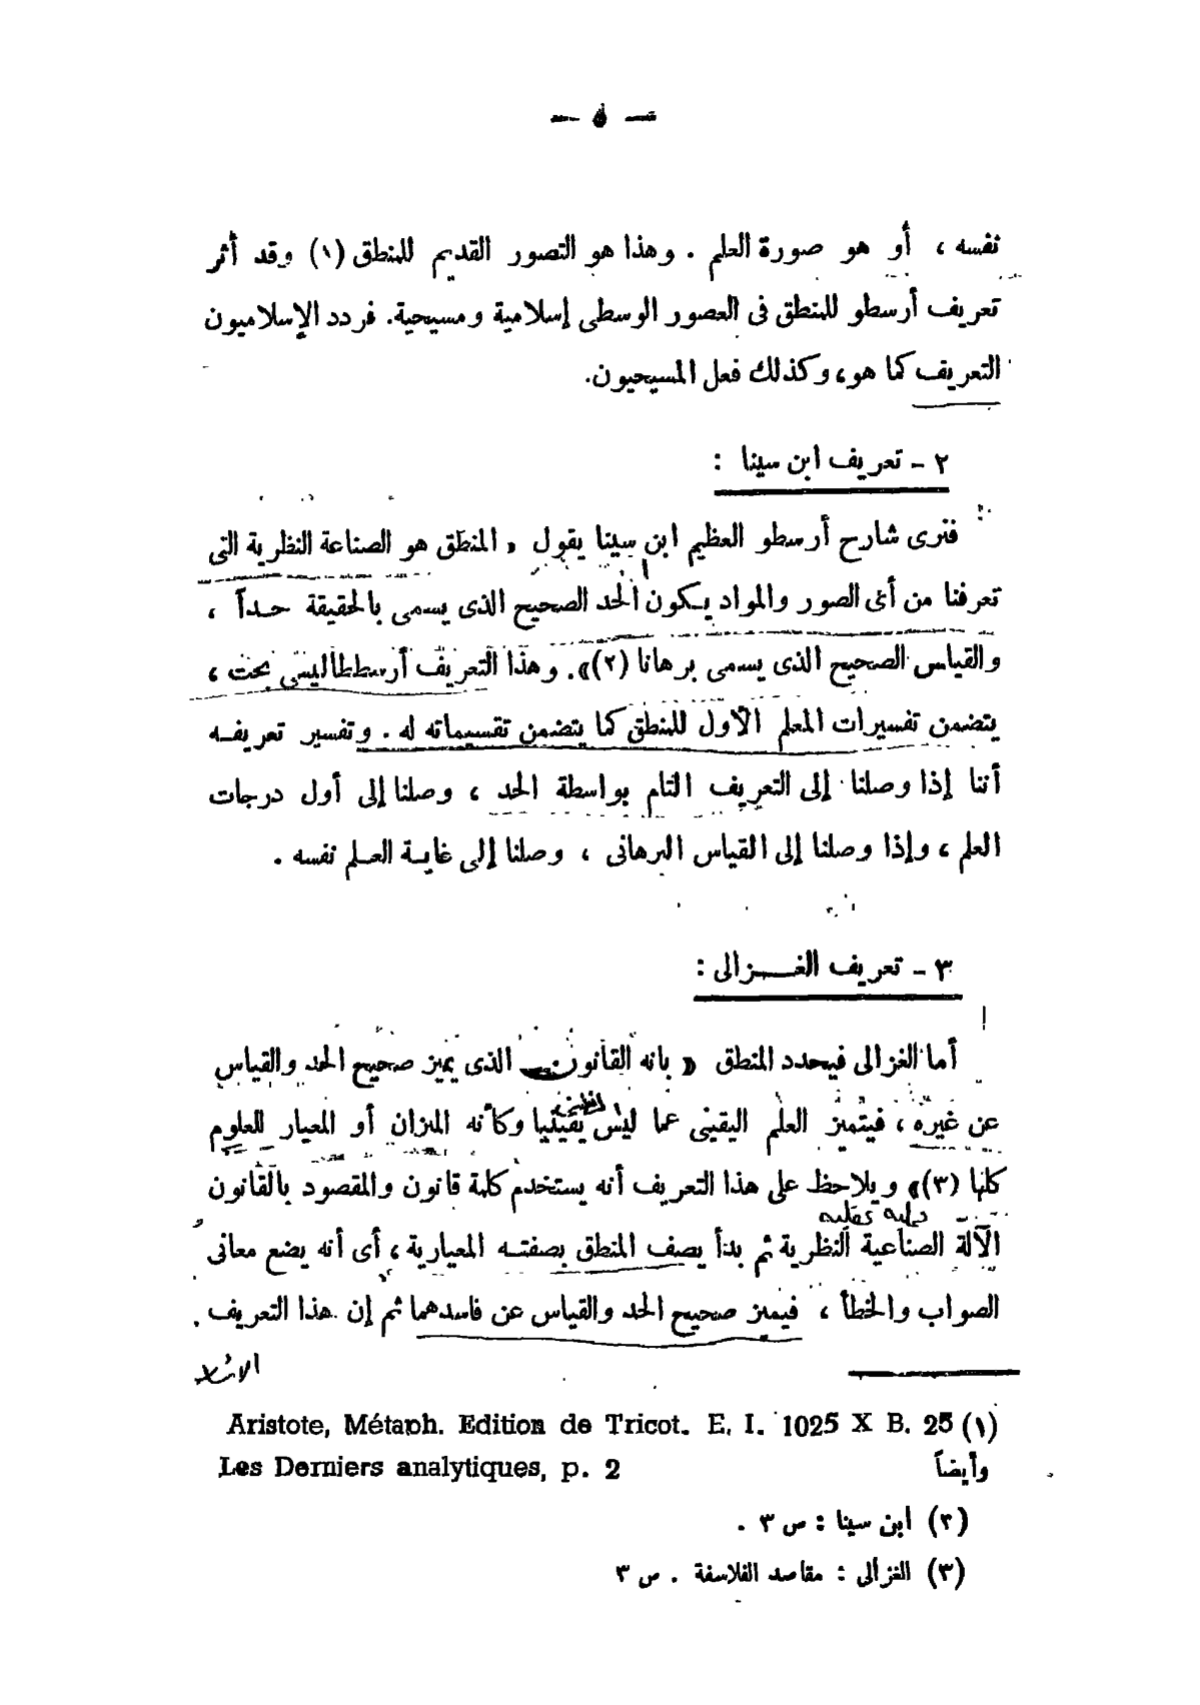 نفسه ، أو هو صورة العلم . وهذا هو التصور القديم للمنطق (١) وقد أثر
تعريف أرسطو للمنطق فى العصور الوسطى إسلامية ومسيحية. فردد الإسلاميون
التعريف كما هو، وكذلك فعل المسيحيون.
٢ - تعريف ابن سينا :
فنرى شارح أرسطو العظيم ابن سينا يقول « المنطق هو الصناعة النظرية التى
تعرفنا من أى الصور والمواد يكون الحد الصحيح الذى يسمى بالحقيقة حداً ،
والقياس الصحيح الذى يسمى برهانا (٢)». وهذا التعريف أرسططاليسى بحت ،
يتضمن تفسيرات المعلم الأول للمنطق كما يتضمن تقسيماته له . وتفسير تعريفه
أننا إذا وصلنا إلى التعريف التام بواسطة الحد ، وصلنا إلى أول درجات
العلم ، وإذا وصلنا إلى القياس البرهانى ، وصلنا إلى غاية العلم نفسه .
٣ - تعريف الغزالى :
أما الغزالى فيحدد المنطق « بانه القانون الذى يميز صحيح الحد والقياس
عن غيره ، فيتميز العلم اليقينى عما ليس يقينيا وكأنه الميزان أو المعيار للعلوم
كلها (٣)» ويلاحظ على هذا التعريف أنه يستخدم كلمة قانون والمقصود بالقانون
الآلة الصناعية النظرية ثم بدأ يصف المنطق بصفته المعيارية ، أى أنه يضع معانى
الصواب والخطأ ، فيميز صحيح الحد والقياس عن فاسدهما ثم إن هذا التعريف
(١) Aristote, Métaph. Edition de Tricot. E. I. 1025 X B. 25
وأيضاً Les Derniers analytiques, p. 2
(٢) ابن سينا : ص ٣ .
(٣) الغزالى : مقاصد الفلاسفة . ص ٣